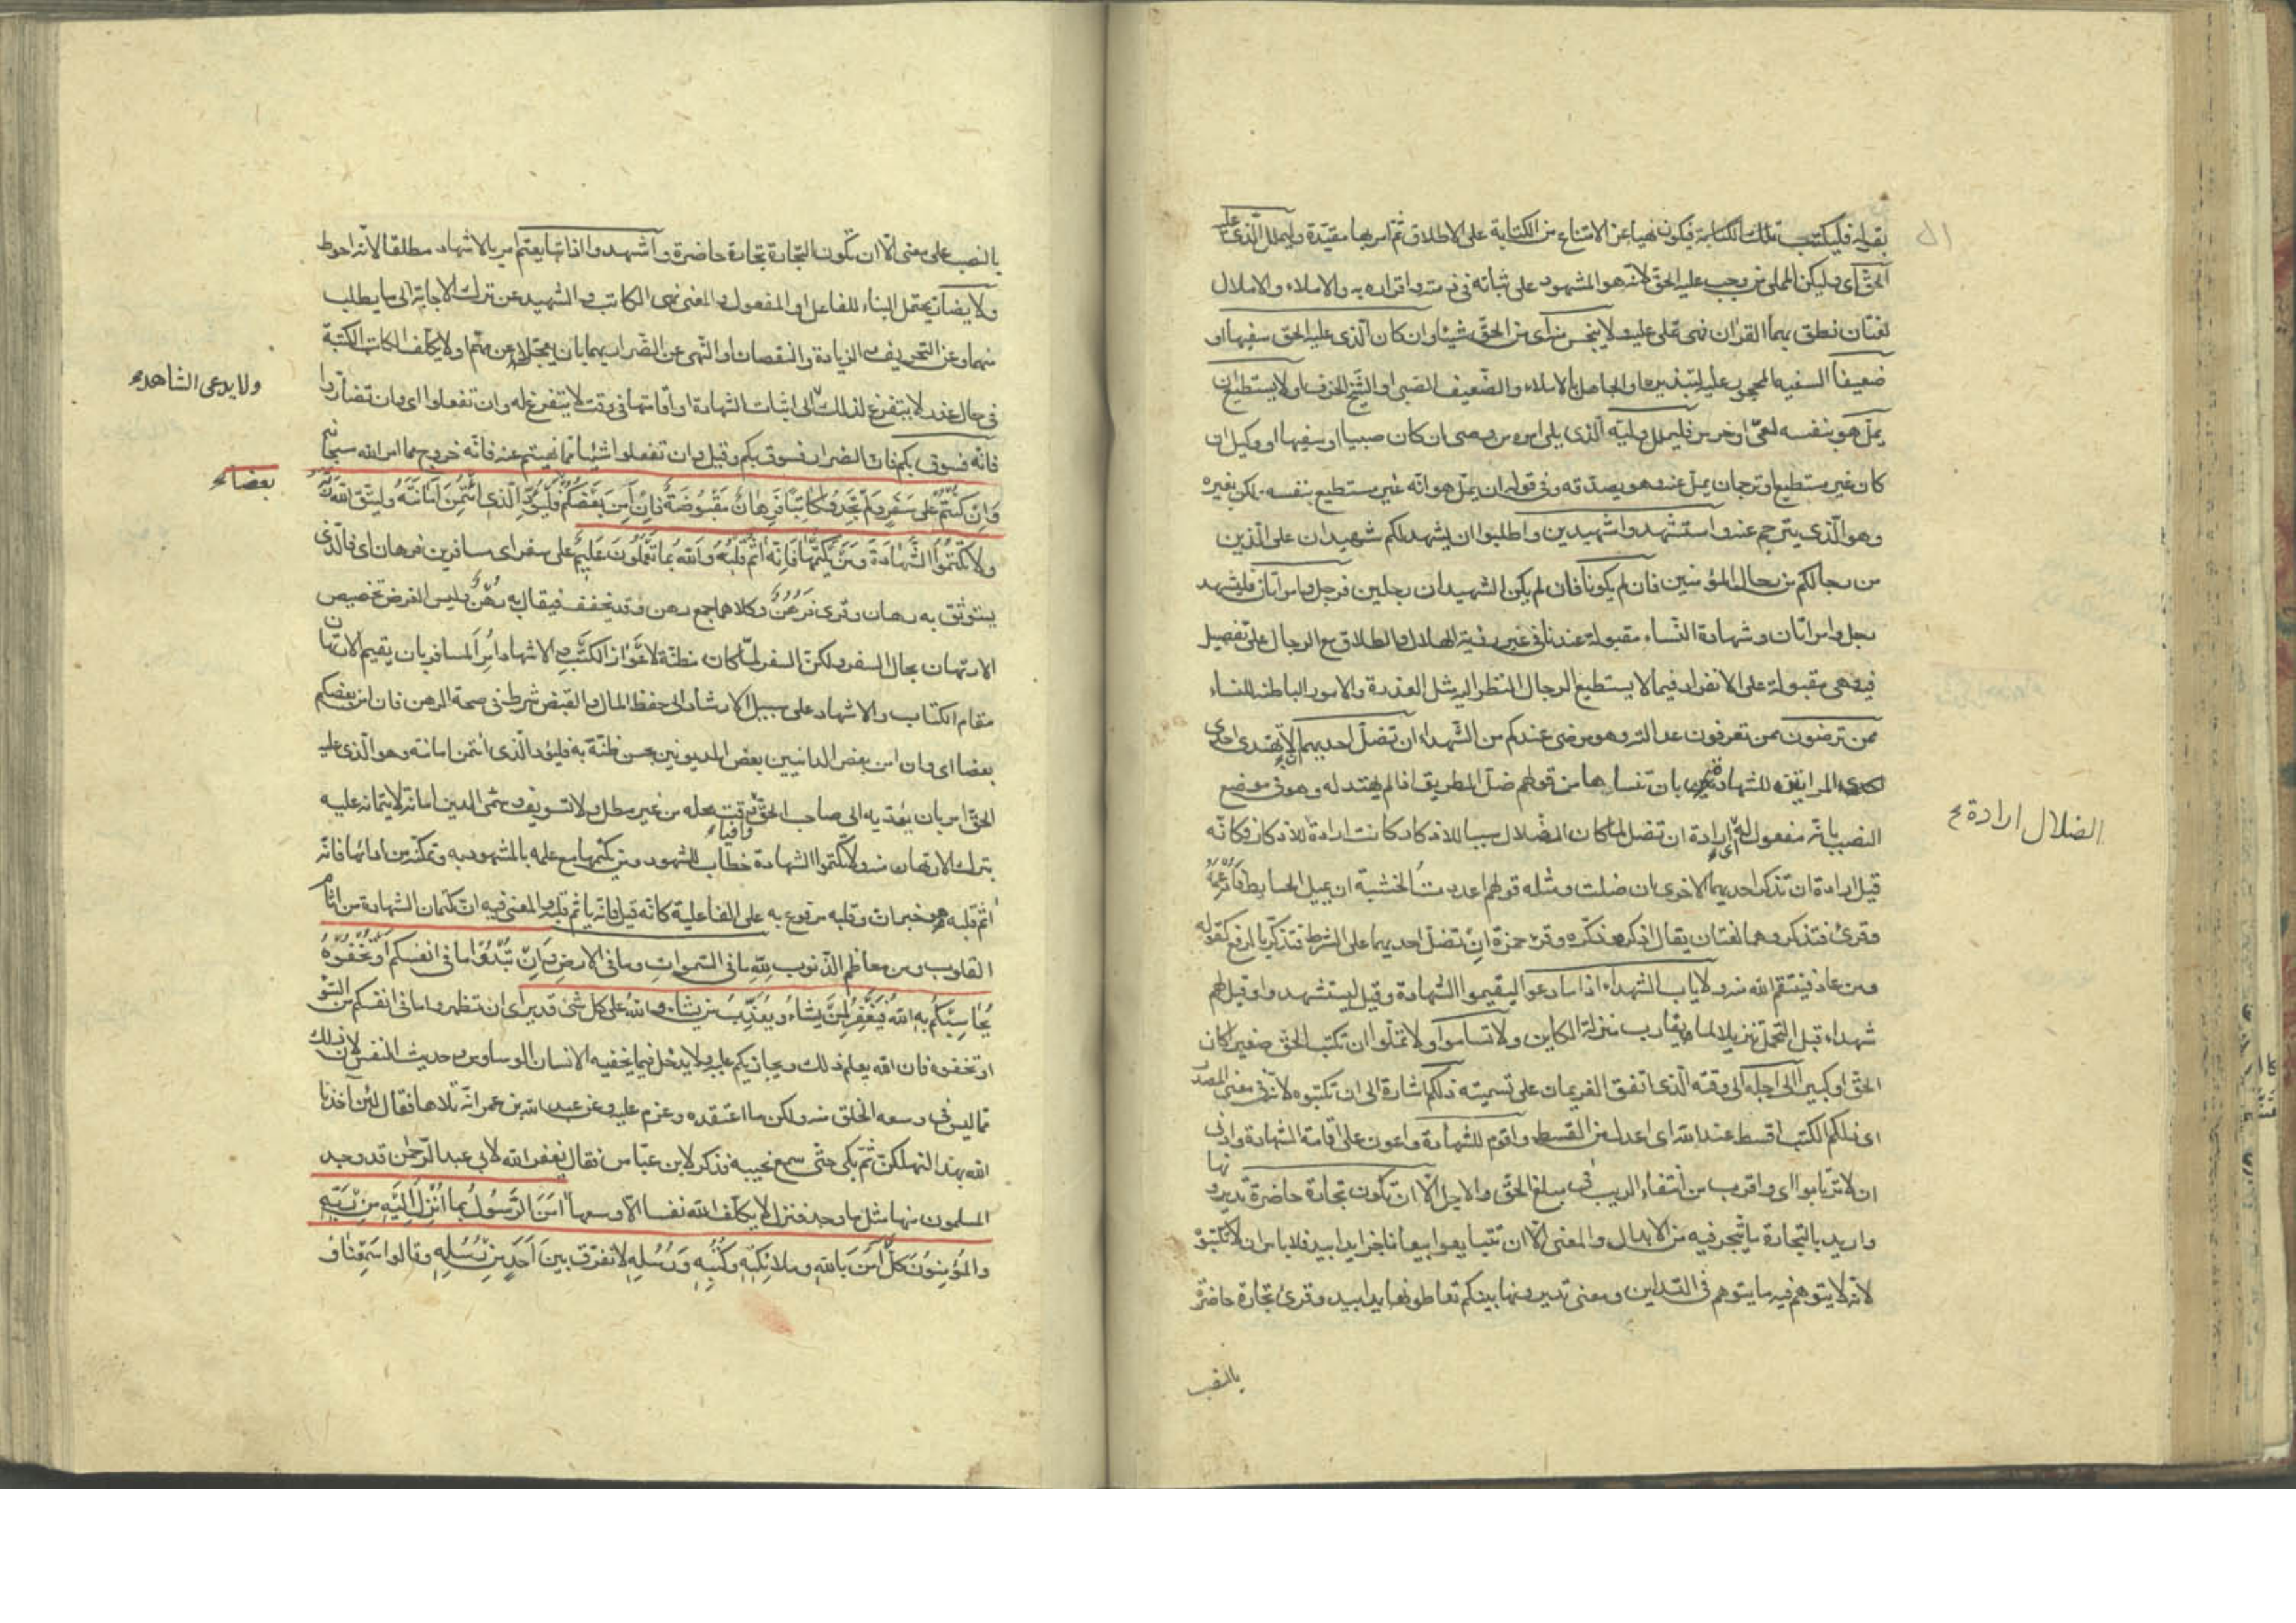 بقوله فليكتب تلك الكتابة فيكون نهيا عن الامتناع من الكتابة على الاطلاق ثم امر بها مقيدة وليملل الذي عليه
الحق اي وليكن المملي من وجب عليه الحق لانه هو المشهود على ثباته في ذمته واقراره به والاملاء والاملال
لغتان نطق بهما القران فهي تملى عليه ولا يبخس منه اي من الحق شيئا وان كان الذي عليه الحق سفيها او
ضعيفا السفيه المحجور عليه لتبذيره او الجاهل بالاملاء والضعيف الصبي او الشيخ الخرف او لا يستطيع ان
يمل هو بنفسه لعي او خرس فليملل وليه الذي يلي امره من وصي ان كان صبيا او سفيها او وكيل ان
كان غير مستطيع او ترجمان يمل عنه وهو يصدقه وفي قوله ان يمل هو انه غير مستطيع بنفسه ولكن بغيره
وهو الذي يترجم عنه واستشهدوا شهيدين واطلبوا ان يشهد لكم شهيدان على الدين
من رجالكم من رجال المؤمنين فان لم يكونا فان لم يكن الشهيدان رجلين فرجل وامراتان فليشهد
رجل وامراتان وشهادة النساء مقبولة عندنا في غير رؤية الهلال والطلاق مع الرجال على تفصيل
فيه وهي مقبولة على الانفراد فيما لا يستطيع الرجال النظر اليه مثل العذرة والامور الباطنة للنساء
ممن ترضون ممن تعرفون عدالته وهو مرضي عندكم من الشهداء ان تضل احديهما لا تهتدي احدى
المراتين للشهادة بان تنساها من قولهم ضل الطريق اذا لم يهتد له وهو في موضع
النصب بانه مفعول له اي ارادة ان تضل لما كان الضلال سببا للاذكار كانت ارادة للاذكار فكانه
الضلال ارادة
قيل ارادة ان تذكر احديهما الاخرى ان ضلت ومثله قولهم اعددت الخشبة ان يميل الحايط فادعمه
وقرئ فتذكر وهما لغتان يقال اذكره وذكره وقرء حمزة ان تضل احديهما على الشرط فتذكر بالرفع كقوله
ومن عاد فينتقم الله منه ولا ياب الشهداء اذا ما دعوا ليقيموا الشهادة وقيل ليستشهدوا وقيل لهم
شهداء قبل التحمل تنزيلا لما يقارب منزلة الكاين ولا تساموا ولا تملوا ان تكتب الحق صغيرا كان
الحق او كبيرا الى اجله الى وقته الذي اتفق الغريمان على تسميته ذلكم اشارة الى ان تكتبوه لانه في معنى المصدر
اي ذلكم الكتب اقسط عند الله اي اعدل من القسط واقوم للشهادة واعون على اقامة الشهادة وادنى
ان لا ترتابوا اي واقرب من انتفاء الريب في مبلغ الحق والاجل الا ان تكون تجارة حاضرة تديرونها
واريد بالتجارة ما يتجر فيه من الابدال والمعنى الا ان تتبايعوا بيعا ناجزا يدا بيد فلا باس ان لا تكتبوه
لانه لا يتوهم فيه ما يتوهم في التداين ومعنى تديرونها بينكم تعاطونها يدا بيد وقرئ تجارة حاضرة
بالنصب
بالنصب على معنى الا ان تكون التجارة تجارة حاضرة واشهدوا اذا تبايعتم امر بالاشهاد مطلقا لانه احوط
ولا يضار يحتمل البناء للفاعل والمفعول والمعنى نهي الكاتب والشهيد عن ترك الاجابة الى ما يطلب
منهما وعن التحريف والزيادة والنقصان او النهي عن الضرار بهما بان يعجلا عن مهم او لا يكلف الكاتب الكتبة
في حال عذر لا يتفرغ لذلك الى اثبات الشهادة او اقامتها في وقت لا يتفرغ له وان تفعلوا اي وان تضاروا
ولا يدعى الشاهد
فانه فسوق بكم فان الضرار فسوق بكم وقيل وان تفعلوا شيئا مما نهيتم عنه فانه خروج مما امر الله سبحانه
وان كنتم على سفر ولم تجدوا كاتبا فرهان مقبوضة فان امن بعضكم فليؤد الذي ائتمن امانته وليتق الله ربه
بعضا
ولا تكتموا الشهادة ومن يكتمها فانه اثم قلبه والله بما تعملون عليم على سفر اي مسافرين فرهان اي فالذي
يستوثق به رهان وقرئ فرهن وكلاهما جمع رهن وقد يخفف فيقال رهن وليس الغرض تخصيص
الارتهان بحال السفر ولكن السفر لما كان مظنة لاعواز الكتب والاشهاد امر المسافر بان يقيم الارتهان
مقام الكتاب والاشهاد على سبيل الارشاد الى حفظ المال والقبض شرط في صحة الرهن فان امن بعضكم
بعضا اي وان امن بعض الداينين بعض المديونين بحسن ظنه به فليؤد الذي ائتمن امانته وهو الذي عليه
الحق امر بان يؤديه الى صاحب الحق وافيا وقت محله من غير مطل ولا تسويف وسمي الدين امانة لايتمانه عليه
بترك الارتهان منه ولا تكتموا الشهادة خطاب للشهود ومن يكتمها مع علمه بالمشهود به وتمكنه من ادائها فانه
اثم قلبه هو خبر ان وقلبه مرفوع به على الفاعلية كانه قيل فانه ياثم قلبه والمعنى فيه ان كتمان الشهادة من اثام
القلوب ومن معاظم الذنوب لله ما في السموات وما في الارض وان تبدوا ما في انفسكم او تخفوه
يحاسبكم به الله فيغفر لمن يشاء ويعذب من يشاء والله على كل شئ قدير اي ان تظهروا ما في انفسكم من السوء
او تخفوه فان الله يعلم ذلك ويجازيكم عليه ولا يدخل فيما يخفيه الانسان الوساوس وحديث النفس لان ذلك
مما ليس في وسعه الخلو منه ولكن ما اعتقده وعزم عليه وعن عبد الله بن عمر انه تلاها فقال لئن اخذنا
الله بهذا لنهلكن ثم بكى حتى سمع نحيبه فذكر لابن عباس فقال يغفر الله لابي عبد الرحمن قد وجد
المسلمون منها مثل ما وجد فنزل لا يكلف الله نفسا الا وسعها امن الرسول بما انزل اليه من ربه
والمؤمنون كل امن بالله وملائكته وكتبه ورسله لا نفرق بين احد من رسله وقالوا سمعنا و